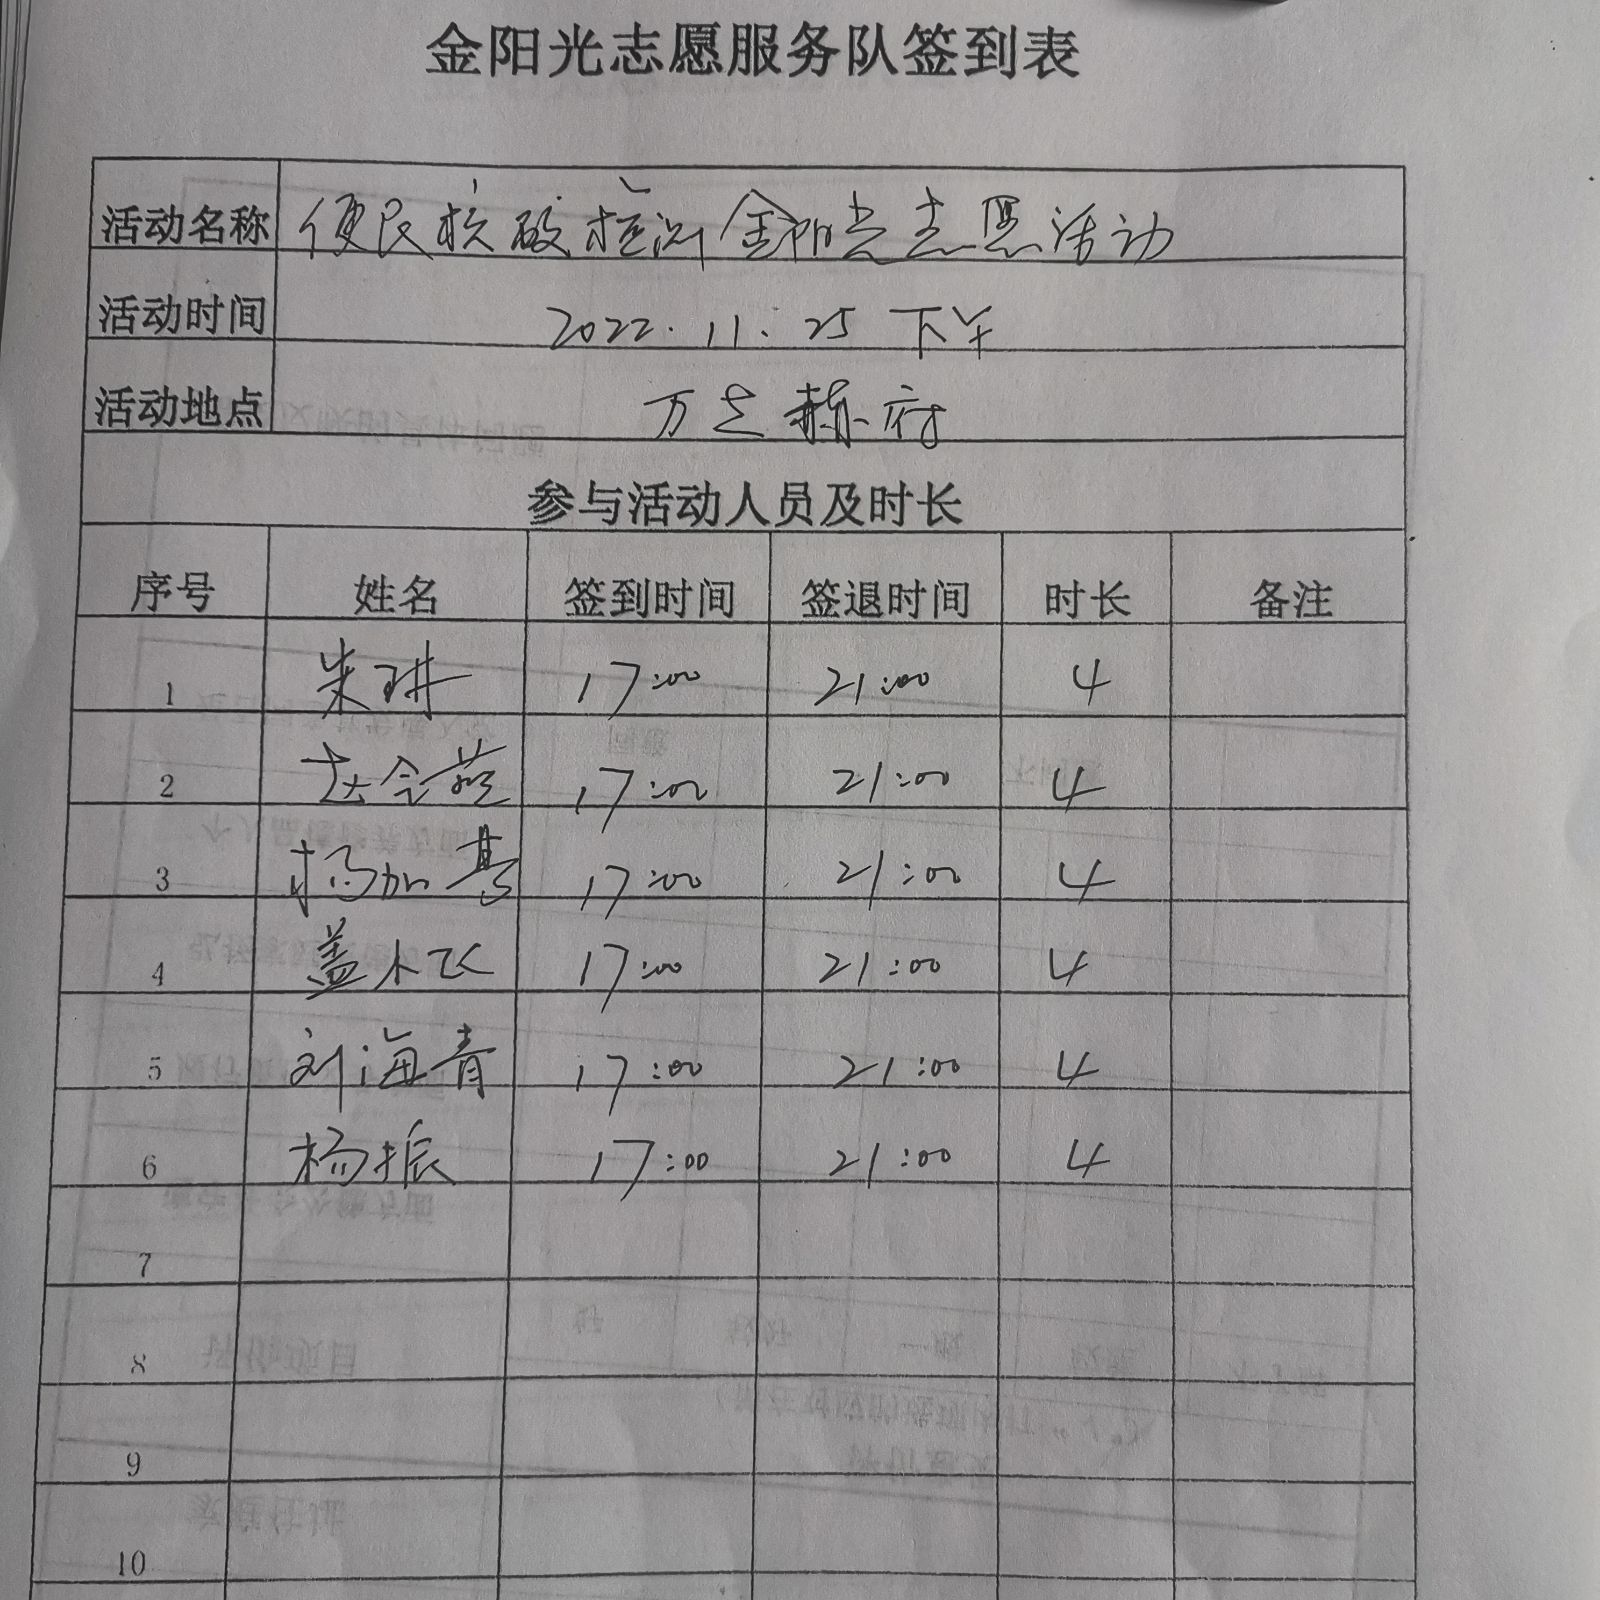 金阳光志愿服务队签到表
活动名称 便民核酸检测金阳光志愿活动
活动时间 2022.11.25 下午
活动地点 万芝赫府
参与活动人员及时长
序号 姓名 签到时间 签退时间 时长 备注
1 朱琳 17:00 21:00 4
2 赵令燕 17:00 21:00 4
3 杨加 17:00 21:00 4
4 盖木飞 17:00 21:00 4
5 刘海青 17:00 21:00 4
6 杨振 17:00 21:00 4
7
8
9
10